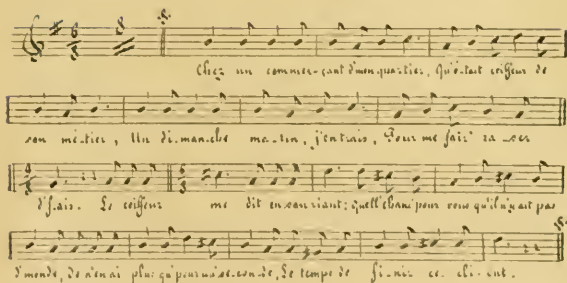 Chez un commer-çant d'mon quartier, Qu'é-tait coiffeur de
son mé-tier, Un di-man-che ma-tin, j'entrais, Pour me fair' ra-ser
d'frais. Le coiffeur me dit en souriant: Quell' chanc' pour vous qu'il n'y ait pas
d'monde, Je n'en ai plus qu'pour un' se-con-de, Le temps de fi-nir ce cli-ent.